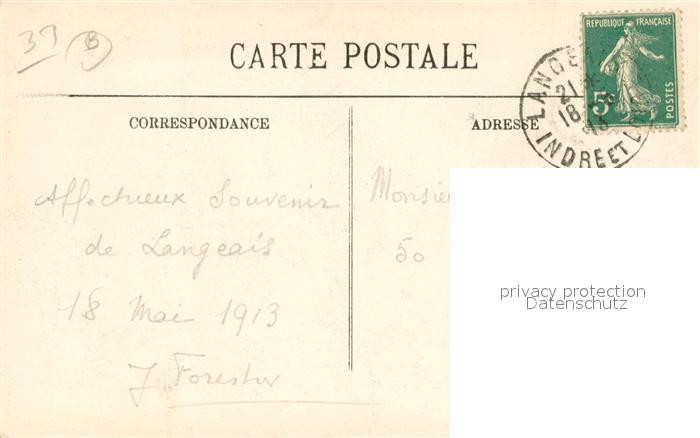 37 B
CARTE POSTALE
REPUBLIQUE FRANÇAISE
5c
POSTES
LANGE
21
18
13
INDRE ET L
CORRESPONDANCE
ADRESSE
Affectueux Souvenir
de Langeais
18 Mai 1913
J Forestier
Monsie
50
privacy protection
Datenschutz